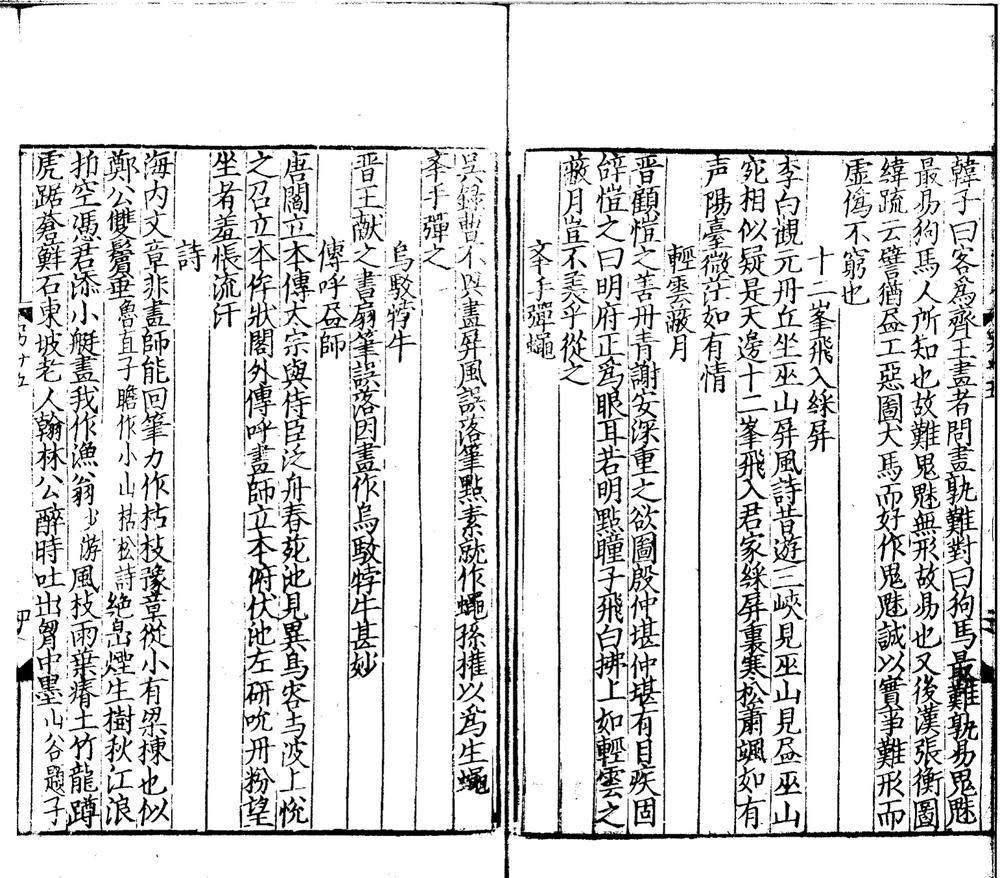 韓子曰客爲齊王畫者問畫孰難對曰狗馬最難孰易鬼魅
最易狗馬人所知也故難鬼魅無形故易也又後漢張衡圖
緯疏云譬猶畫工惡圖犬馬而好作鬼魅誠以實事難形而
虛僞不窮也
十二峯飛入綵屏
李白觀元丹丘坐巫山屏風詩昔遊三峽見巫山見畵巫山
宛相似疑是天邊十二峯飛入君家綵屏裏寒松蕭颯如有
声陽臺微茫如有情
輕雲蔽月
晋顧愷之善丹青謝安深重之欲圖殷仲堪仲堪有目疾固
辝愷之曰明府正爲眼耳若明點瞳子飛白拂上如輕雲之
蔽月豈不美乎從之
峯手彈蠅
吳録曹不興畫屏風誤落筆點素就作蠅孫權以爲生蠅
峯手彈之
烏駮牸牛
晋王献之書扇筆誤落因畫作烏駮牸牛甚妙
傳呼畵師
唐閻立本傳太宗與侍臣泛舟春苑池見異鳥容与波上悅
之召立本侔狀閣外傳呼畫師立本俯伏池左研吮丹粉望
坐者羞悵流汗
詩
海内文章非畫師能回筆力作枯枝豫章從小有梁棟也似
鄭公雙鬢垂魯直子瞻作小山枯松詩絶島煙生樹秋江浪
拍空馮君添小艇畫我作漁翁少游風枝雨葉瘠土竹龍蹲
虎踞蒼蘚石東坡老人翰林公醉時吐出胷中墨山谷題子